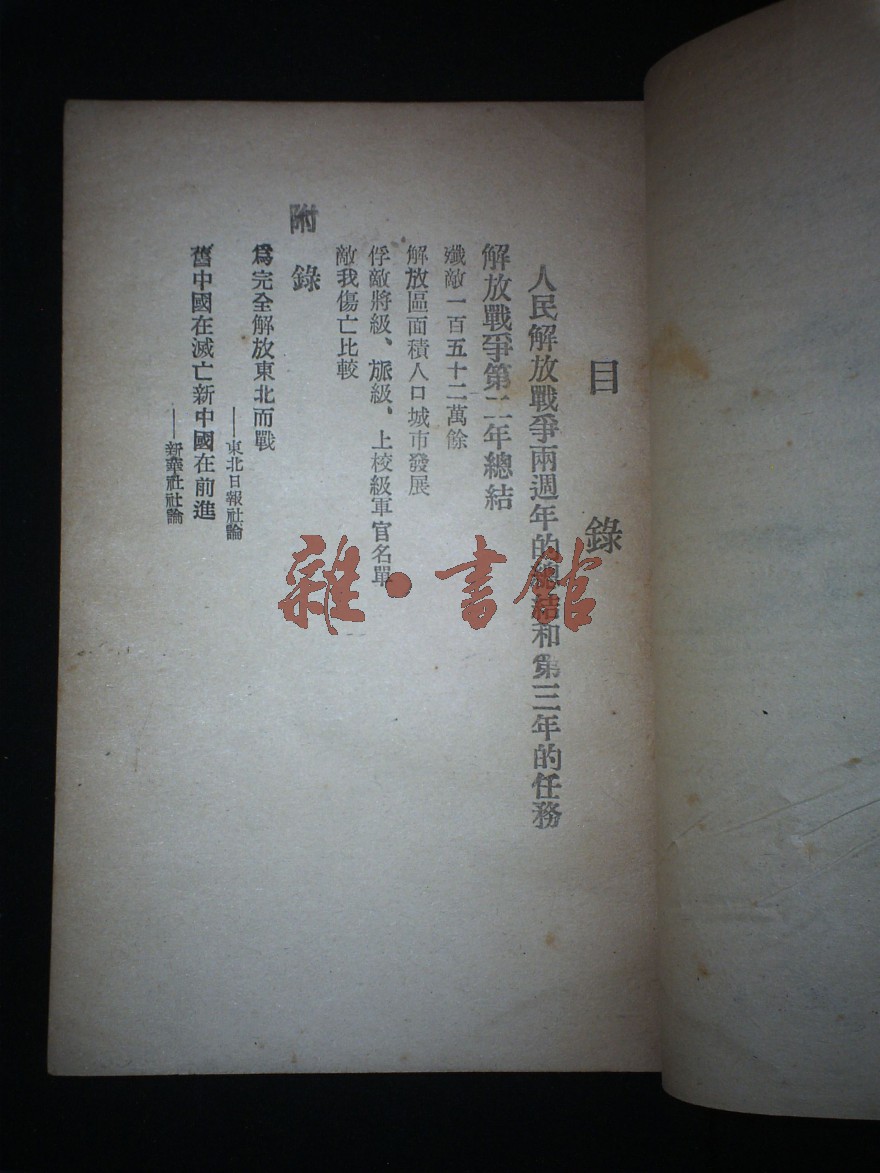 目錄
人民解放戰爭兩週年的總結和第三年的任務
解放戰爭第二年總結
殲敵一百五十二萬餘
解放區面積人口城市發展
俘敵將級、旅級、上校級軍官名單
敵我傷亡比較
附錄
爲完全解放東北而戰
——東北日報社論
舊中國在滅亡新中國在前進
——新華社社論
雜·書館